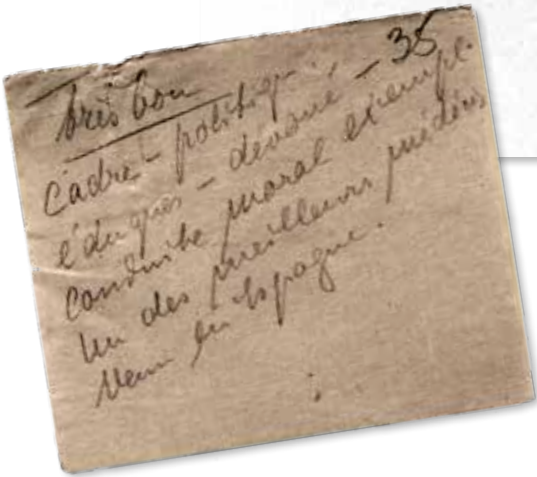 très bon 38
cadre - politiq.
éduqués - dévoué -
conduite moral exempl.
Un des meilleurs médécins
Venu en Espagne.